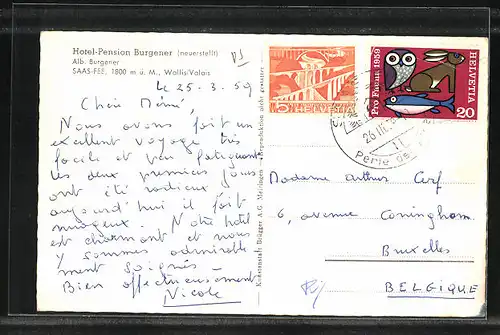 Hotel-Pension Burgener (neuerstellt)
Alb. Burgener
SAAS-FEE, 1800 m ü. M., Wallis/Valais
Le 25-3-59
Nous avons fait un
excellent voyage très
facile et peu fatiguant
les deux premiers jours
ont été radieux
aujourd'hui il fait
nuageux. Notre hotel
est charmant et nous
y sommes admirable
ment soignés
Bien affectueusement
Nicole
Kunstanstalt Brügger A.G. Meiringen - Reproduktion nicht gestattet
5 HELVETIA
Pro Fauna 1959
HELVETIA
20
26.III.
Perle de
Madame Arthur Cerf
6, avenue Coninghem
Bruxelles
BELGIQUE